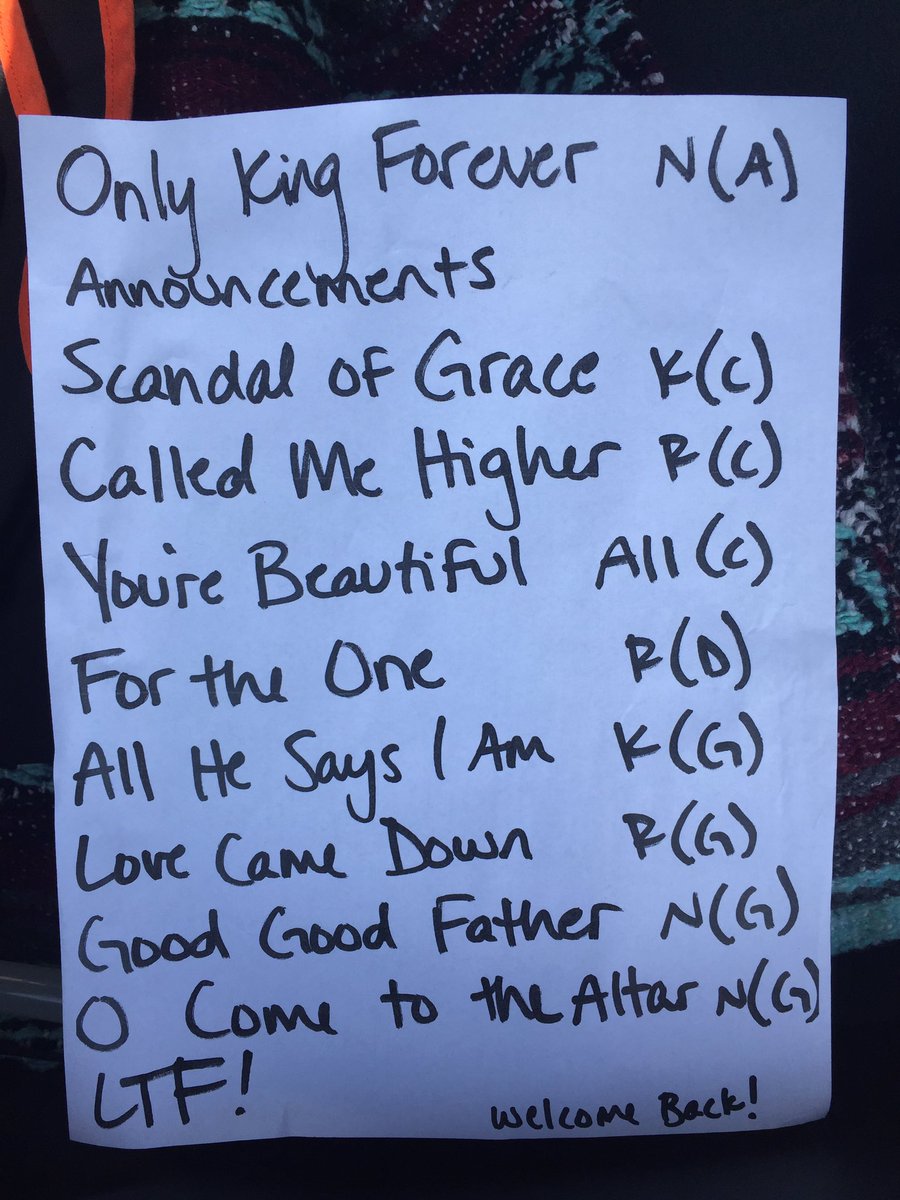 Only King Forever N(A)
Announcements
Scandal of Grace K(C)
Called Me Higher R(C)
You're Beautiful All(C)
For the One R(D)
All He Says I Am K(G)
Love Came Down R(G)
Good Good Father N(G)
O Come to the Altar N(G)
LTF!
Welcome Back!